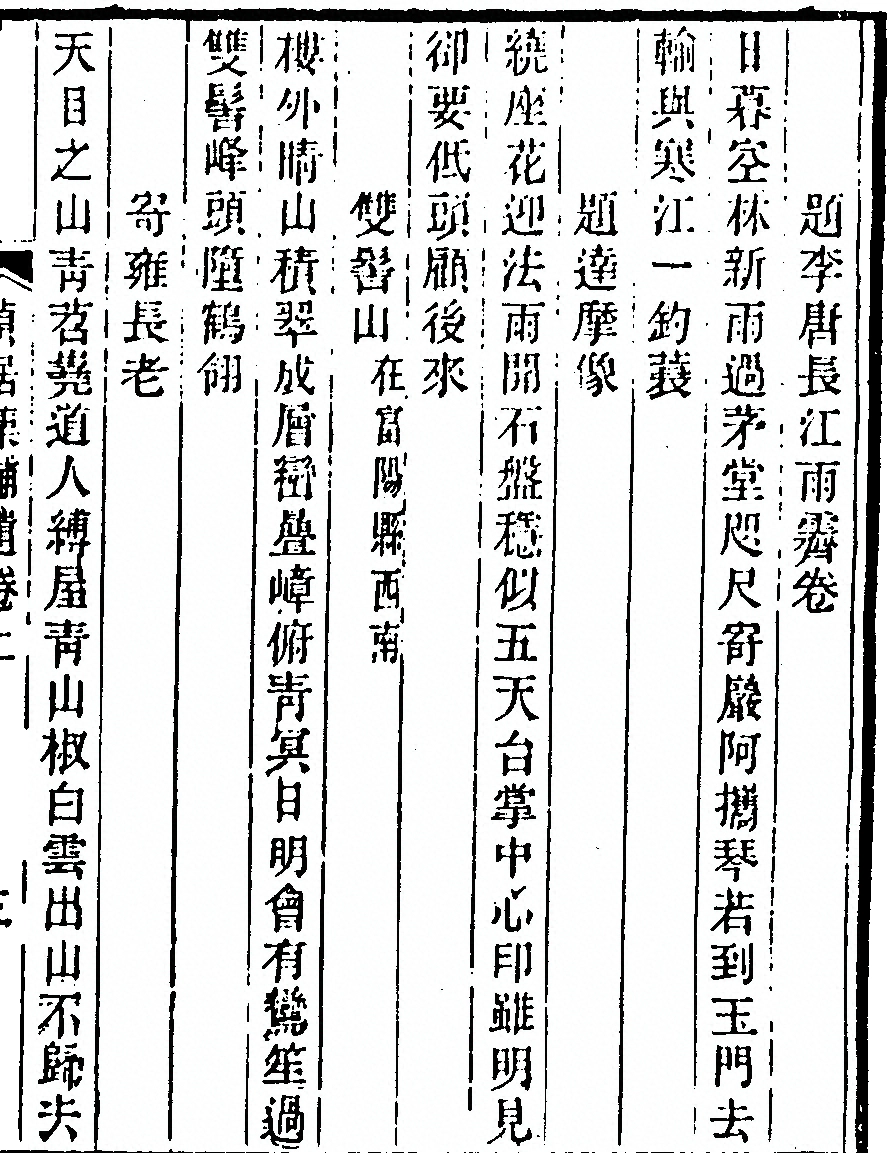 題李唐長江雨霽卷
日暮空林新雨過茅堂咫尺寄巖阿攜琴若到玉門去
輸與寒江一釣蓑
題達摩像
繞座花迎法雨開石盤穩似五天台掌中心印雖明見
卻要低頭顧後來
雙髻山在富陽縣西南
樓外晴山積翠成層巒疊嶂俯青冥日明會有鸞笙過
雙髻峰頭墮鶴翎
寄雍長老
天目之山青苕嶤道人縛屋青山椒白雲出山不歸去
貞居集補遺卷二
三